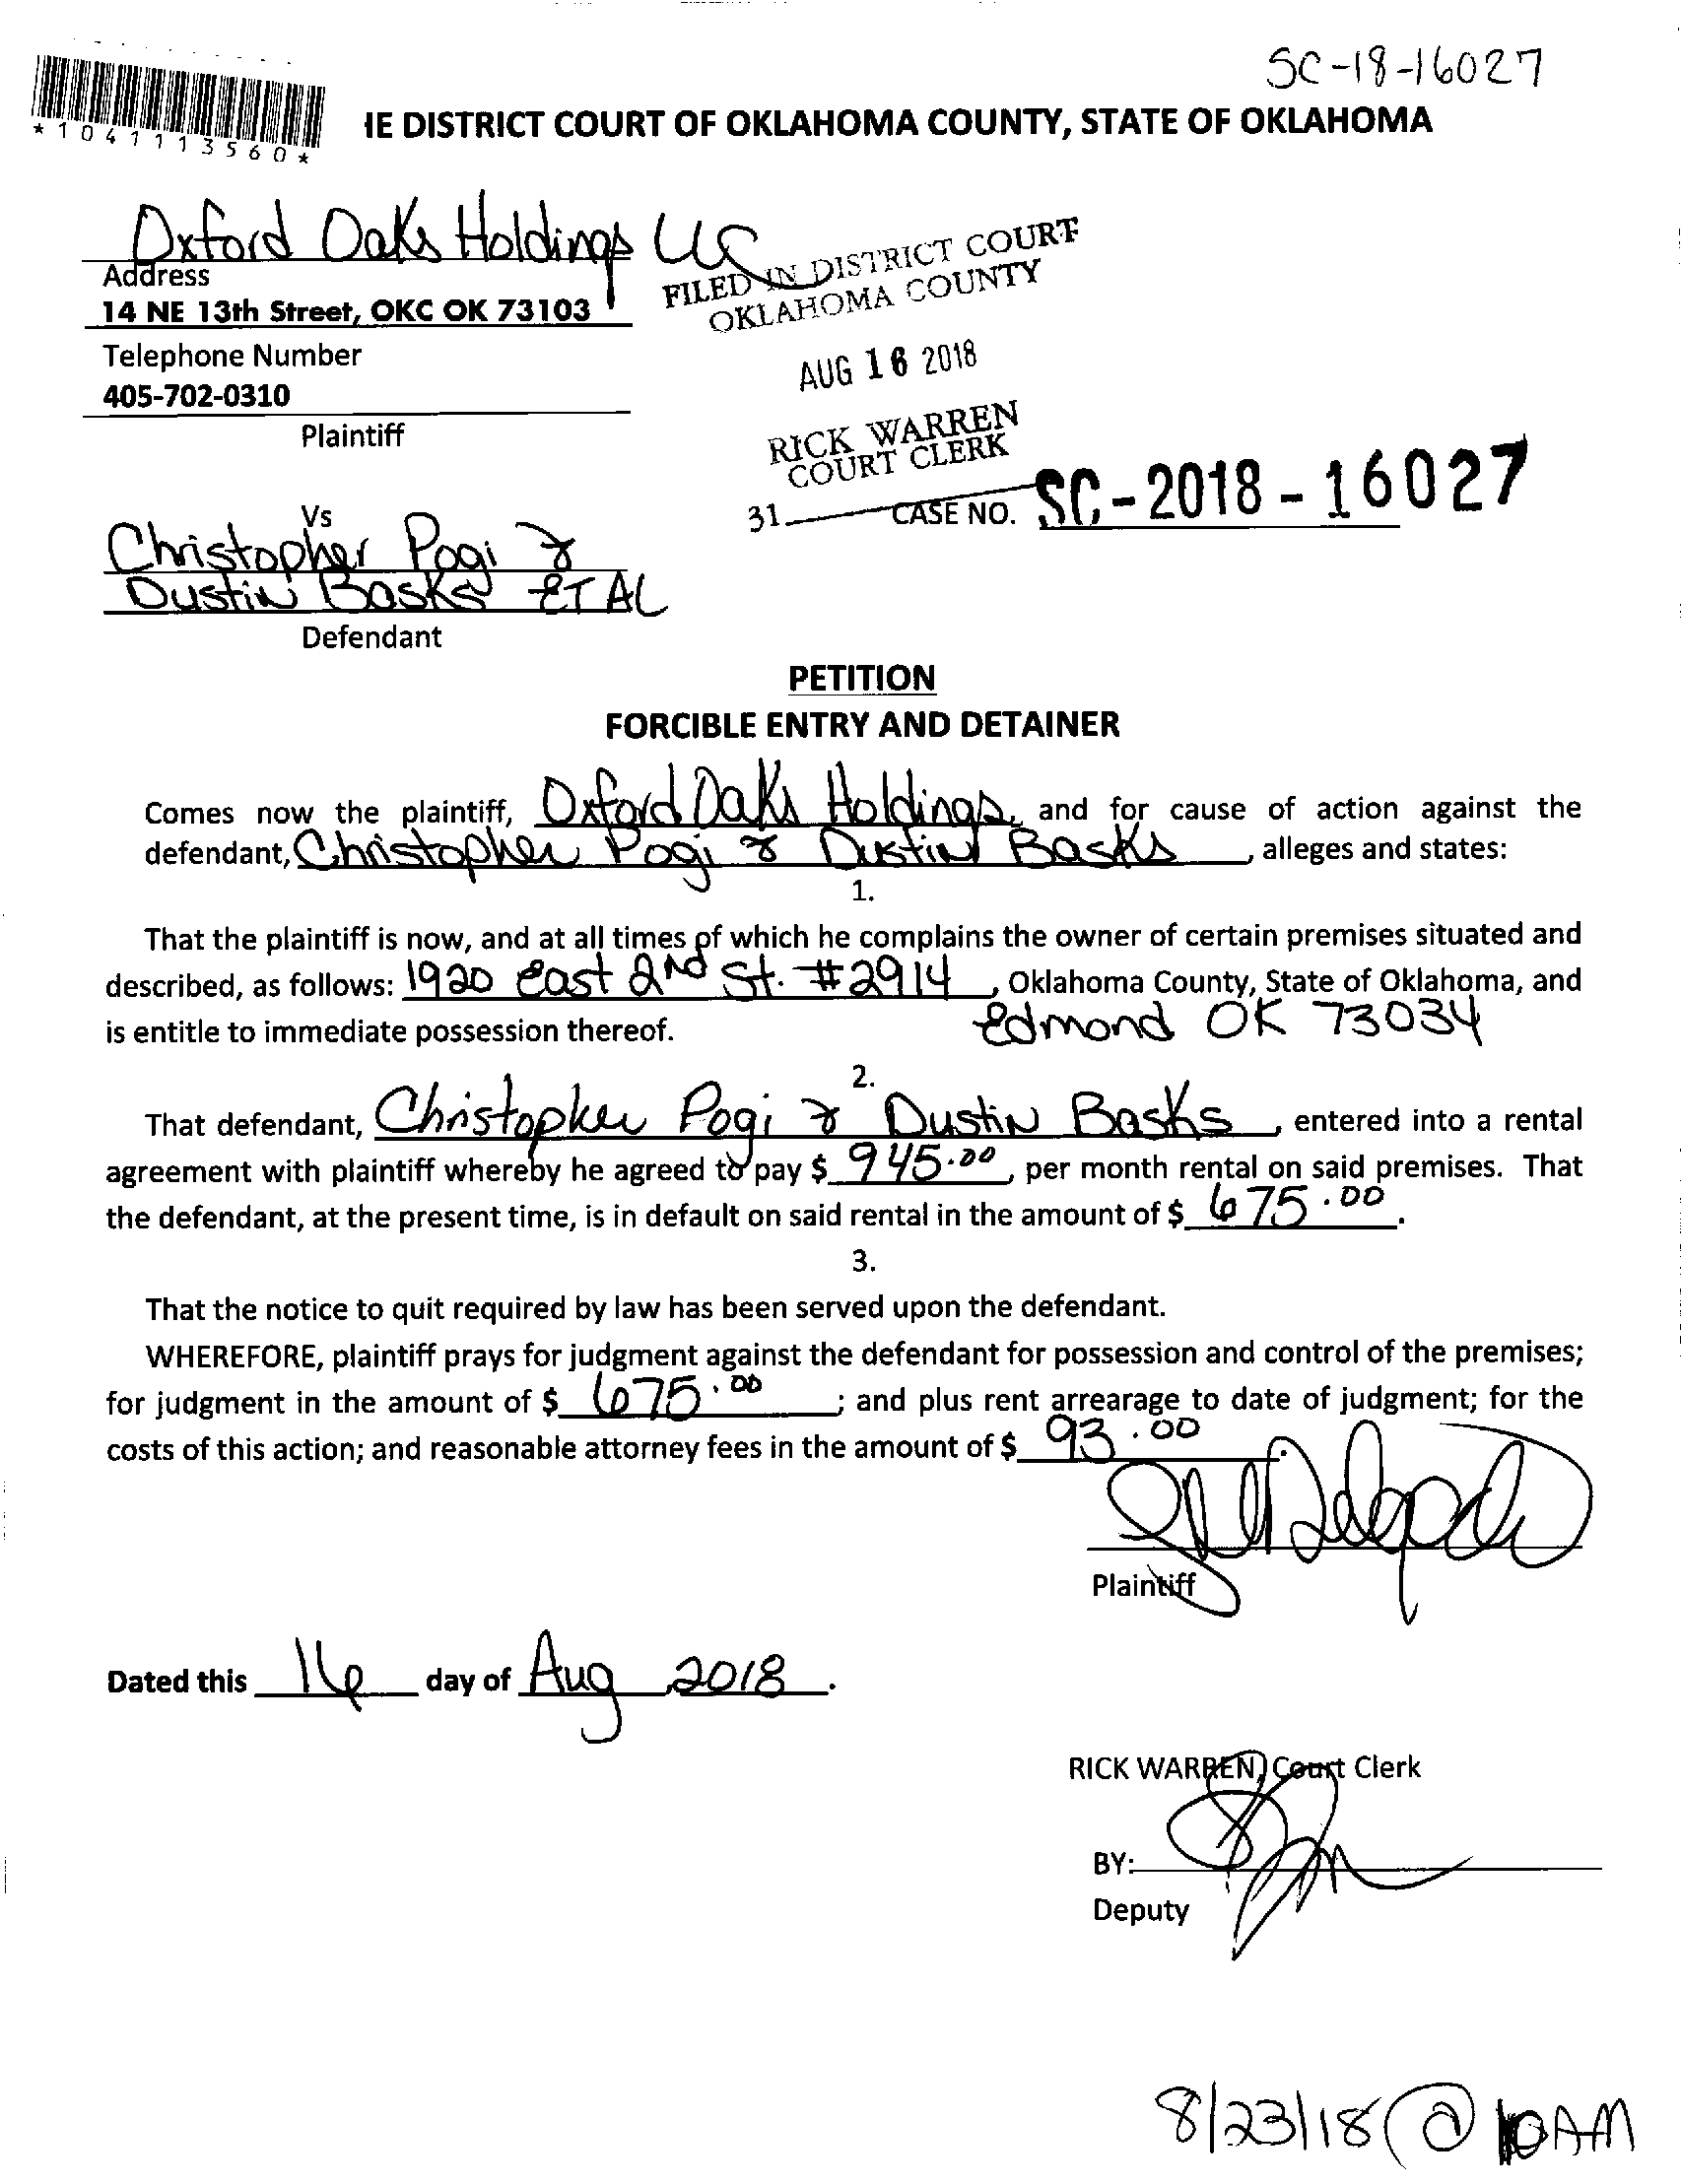 SC-18-16027
*1041113560*
IE DISTRICT COURT OF OKLAHOMA COUNTY, STATE OF OKLAHOMA
Oxford Oaks Holdings LLC
Address
14 NE 13th Street, OKC OK 73103
Telephone Number
405-702-0310
Plaintiff
FILED IN DISTRICT COURT
OKLAHOMA COUNTY
AUG 16 2018
RICK WARREN
COURT CLERK
31
CASE NO. SC-2018-16027
Vs
Christopher Pogi &
Dustin Basks ET AL
Defendant
PETITION
FORCIBLE ENTRY AND DETAINER
Comes now the plaintiff, Oxford Oaks Holdings, and for cause of action against the
defendant, Christopher Pogi & Dustin Basks, alleges and states:
1.
That the plaintiff is now, and at all times of which he complains the owner of certain premises situated and
described, as follows: 1920 East 2nd St. #2914, Oklahoma County, State of Oklahoma, and
Edmond OK 73034
is entitle to immediate possession thereof.
2.
That defendant, Christopher Pogi & Dustin Basks, entered into a rental
agreement with plaintiff whereby he agreed to pay $ 945.00, per month rental on said premises. That
the defendant, at the present time, is in default on said rental in the amount of $ 675.00.
3.
That the notice to quit required by law has been served upon the defendant.
WHEREFORE, plaintiff prays for judgment against the defendant for possession and control of the premises;
for judgment in the amount of $ 675.00; and plus rent arrearage to date of judgment; for the
costs of this action; and reasonable attorney fees in the amount of $ 93.00.
Plaintiff
Dated this 16 day of Aug, 2018.
RICK WARREN, Court Clerk
BY:
Deputy
8/23/18 @ 10AM